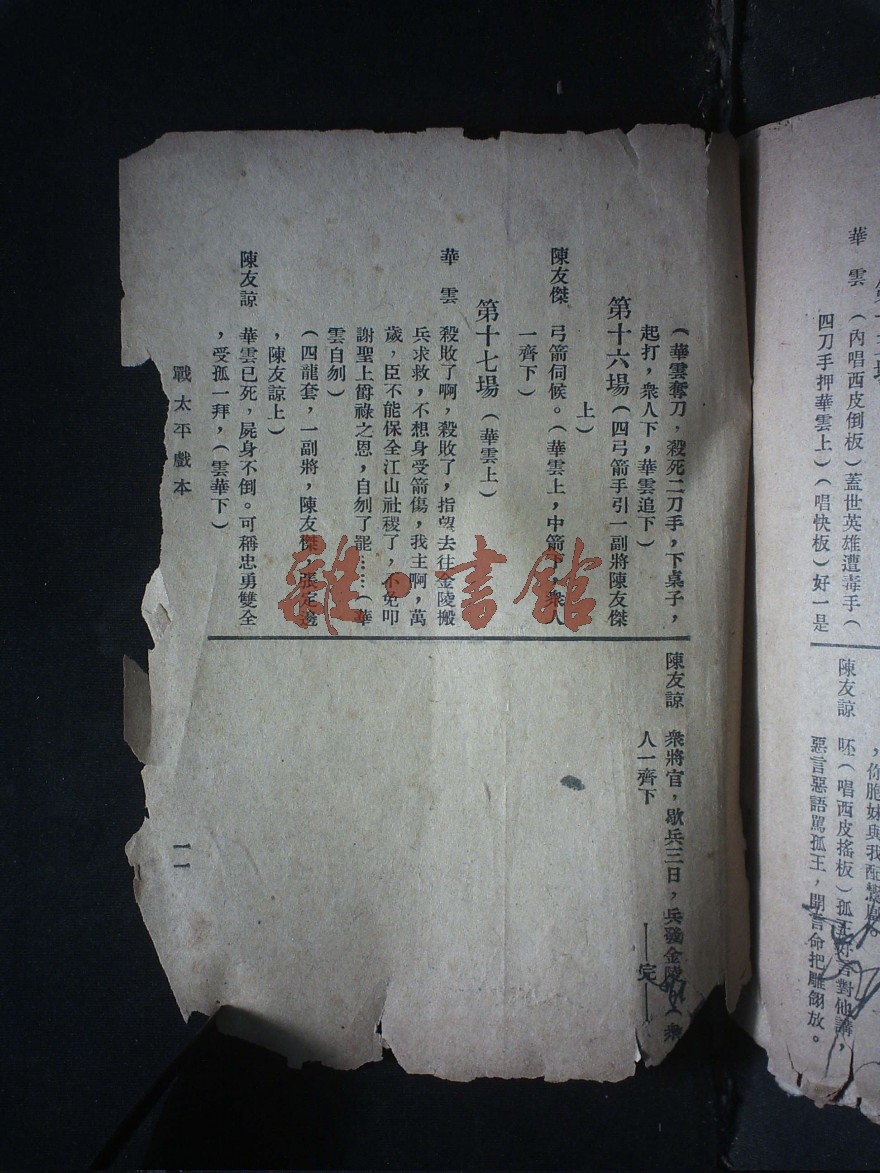 華 雲 (內唱西皮倒板)蓋世英雄遭毒手(
四刀手押華雲上)(唱快板)好一是
,你胞妹與我配鸞
陳友諒 呸(唱西皮搖板)孤王好言對他講,
惡言惡語罵孤王,開言命把雕翎放。
(華雲奪刀,殺死二刀手,下桌子,
起打,衆人下,華雲追下)
第十六場(四弓箭手引一副將陳友傑
上)
陳友傑 弓箭伺候。(華雲上,中箭下,衆人
一齊下)
第十七場(華雲上)
華 雲 殺敗了啊,殺敗了,指望去往金陵搬
兵求救,不想身受箭傷,我主啊,萬
歲,臣不能保全江山社稷了,不免叩
謝聖上爵祿之恩,自刎了罷……(華
雲自刎)
(四龍套,一副將,陳友傑,張定邊
,陳友諒上)
陳友諒 華雲已死,屍身不倒。可稱忠勇雙全
,受孤一拜,(雲華下)
陳友諒 衆將官,歇兵三日,兵發金陵 衆
人一齊下
——完——
戰太平戲本
一一
雜·書館